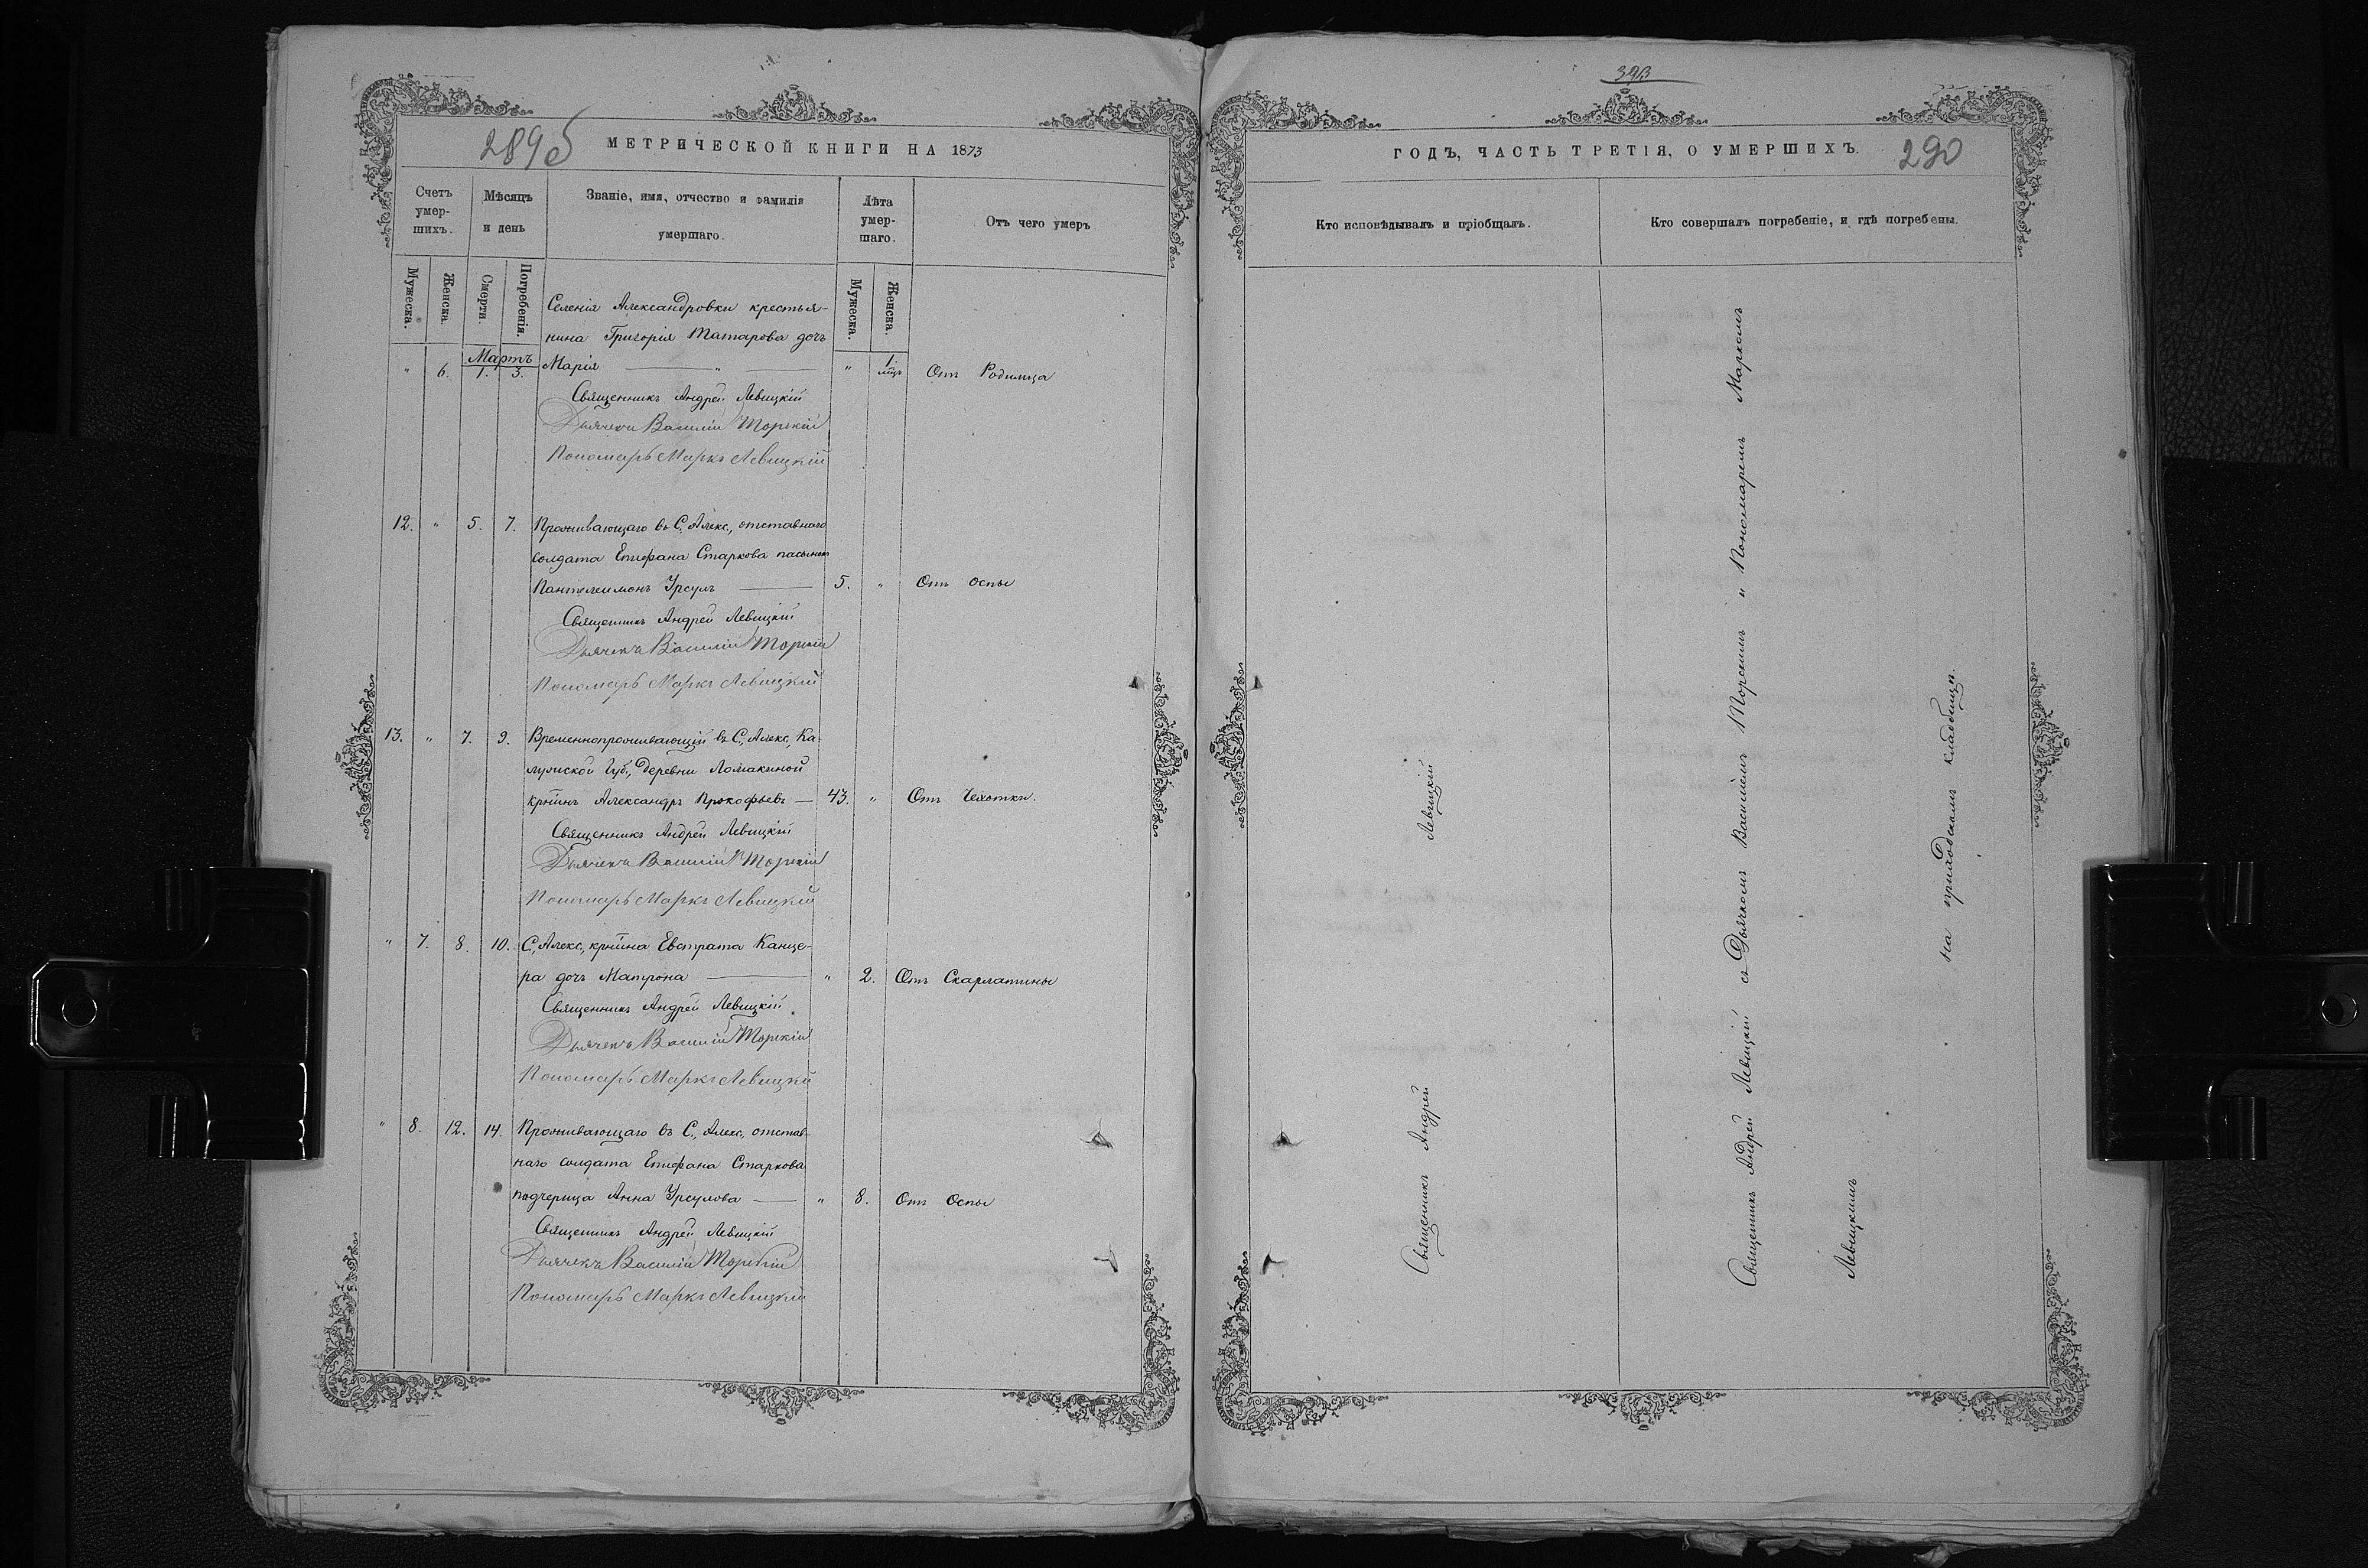 289б
МЕТРИЧЕСКОЙ КНИГИ НА 1873
Счетъ умер-шихъ.
Мѣсяцъ и день
Званіе, имя, отчество и фамилія умершаго.
Лѣта умер-шаго.
Отъ чего умеръ
Мужеска.
Женска.
Смерти.
Погребенія.
Мужеска.
Женска.
Селенія Александровки крестья-
нина Григорія Татарова дочь
Мартъ
" 6. 1. 3. Марія " " 1 мцъ Отъ Родимца
Священникъ Андрей Левицкій
Дьячекъ Василій Морскій
Пономарь Маркъ Левицкій
12. " 5. 7. Проживающаго въ С. Алекс., отставнаго
солдата Епифана Старкова пасынок
Пантелеимонъ Урсулъ 5. " Отъ оспы
Священникъ Андрей Левицкій
Дьячекъ Василій Морскій
Пономарь Маркъ Левицкій
13. " 7. 9. Временнопроживающій въ С., Алекс., Ка-
лужской Губ., деревни Ломакиной
кртнинъ Александръ Прокофьевъ 43. " Отъ Чехотки.
Священникъ Андрей Левицкій
Дьячекъ Василій Морскій
Пономарь Маркъ Левицкій
" 7. 8. 10. С., Алекс., кртнина Евстрата Канце-
ра дочь Матрона " 2. Отъ Скарлатины
Священникъ Андрей Левицкій
Дьячекъ Василій Морскій
Пономарь Маркъ Левицкій
" 8. 12. 14. Проживающаго въ С., Алекс., отстав-
наго солдата Епифана Старкова
подчерица Анна Урсулова " 8. Отъ Оспы
Священникъ Андрей Левицкій
Дьячекъ Василій Морскій
Пономарь Маркъ Левицкій
ГОДЪ, ЧАСТЬ ТРЕТІЯ, О УМЕРШИХЪ.
290
Кто исповѣдывалъ и пріобщалъ.
Кто совершалъ погребеніе, и гдѣ погребены.
Священникъ Андрей Левицкій
Священникъ Андрей Левицкій съ Дьячкомъ Василіемъ Морскимъ и Пономаремъ Маркомъ
Левицкимъ
на приходскомъ кладбищѣ.